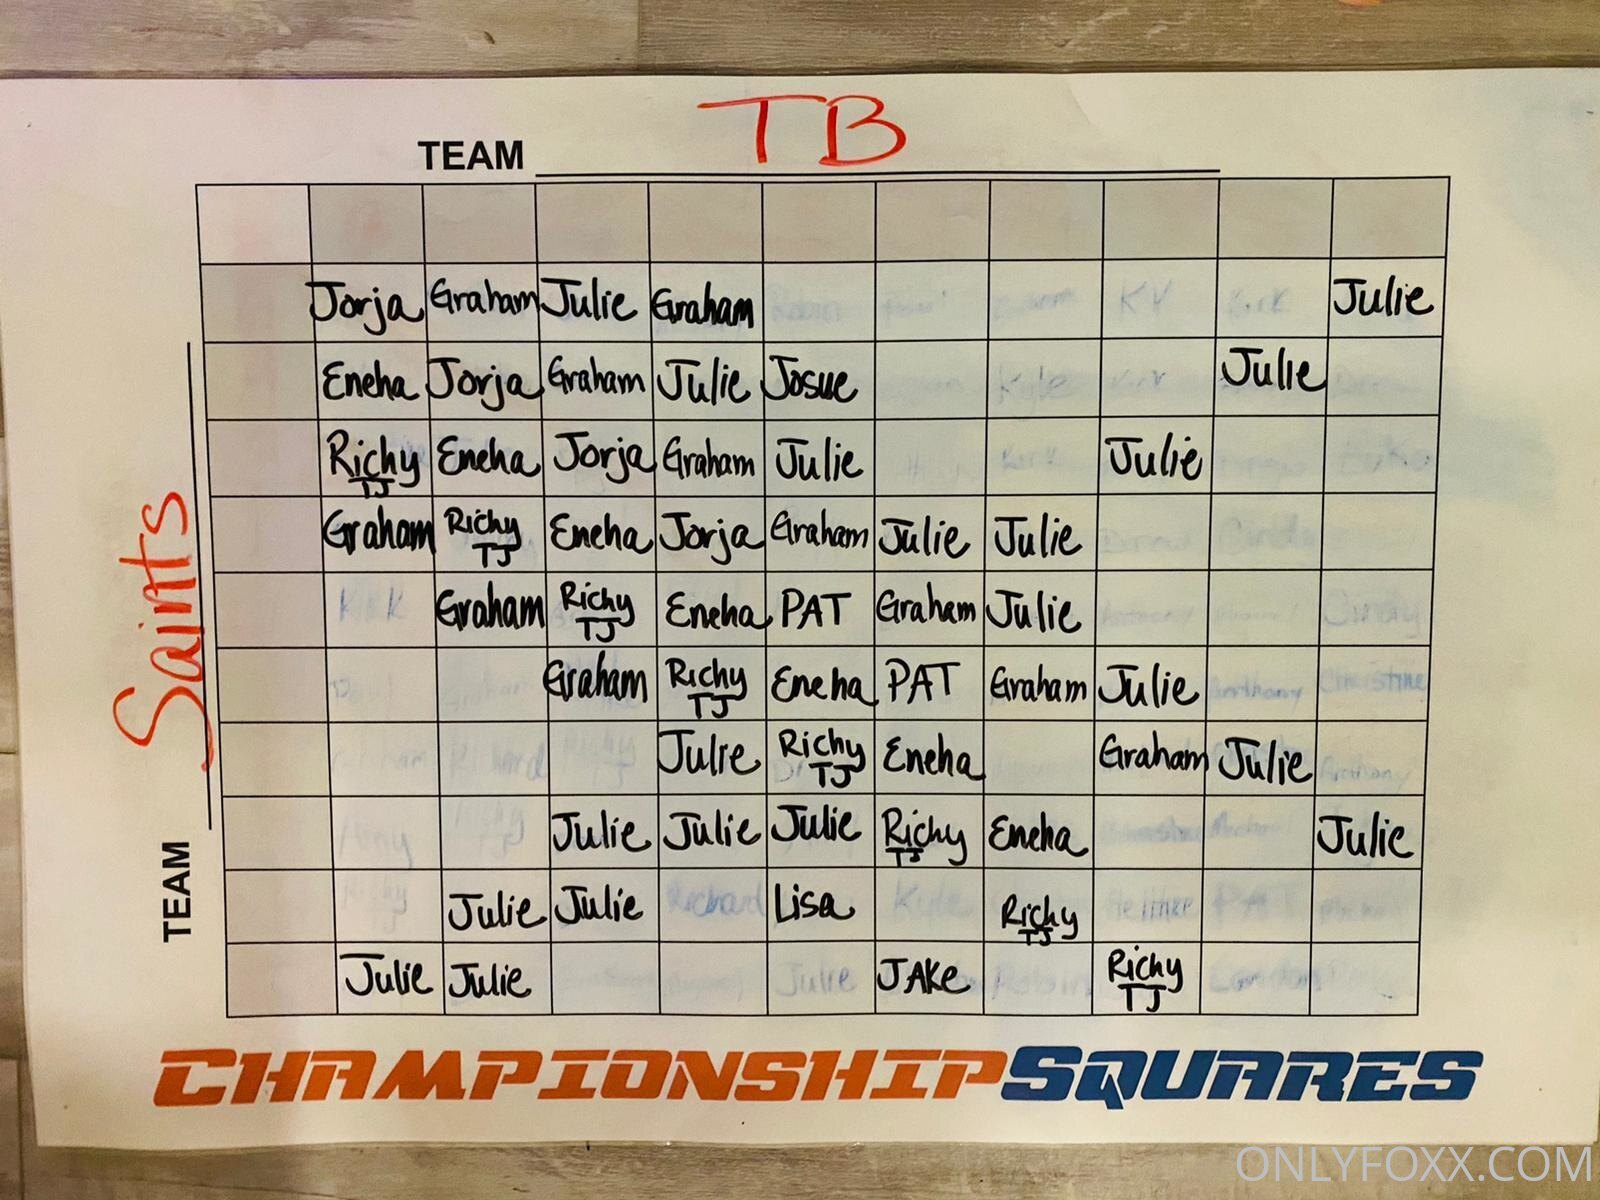 TB
TEAM
Jorja Graham Julie Graham Julie
Eneha Jorja Graham Julie Josue Julie
Richy TJ Eneha Jorja Graham Julie Julie
Graham Richy TJ Eneha Jorja Graham Julie Julie
Graham Richy TJ Eneha PAT Graham Julie
Graham Richy TJ Eneha PAT Graham Julie
Julie Richy TJ Eneha Graham Julie
Julie Julie Julie Richy TJ Eneha Julie
Julie Julie Lisa Richy TJ
Julie Julie JAKE Richy TJ
TEAM Saints
CHAMPIONSHIPSQUARES
ONLYFOXX.COM